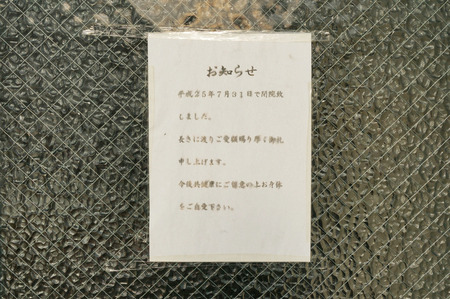 お知らせ
平成25年7月31日で閉院致
しました。
長きに渡りご愛顧賜り厚く御礼
申し上げます。
今後共健康にご留意の上お身体
をご自愛下さい。